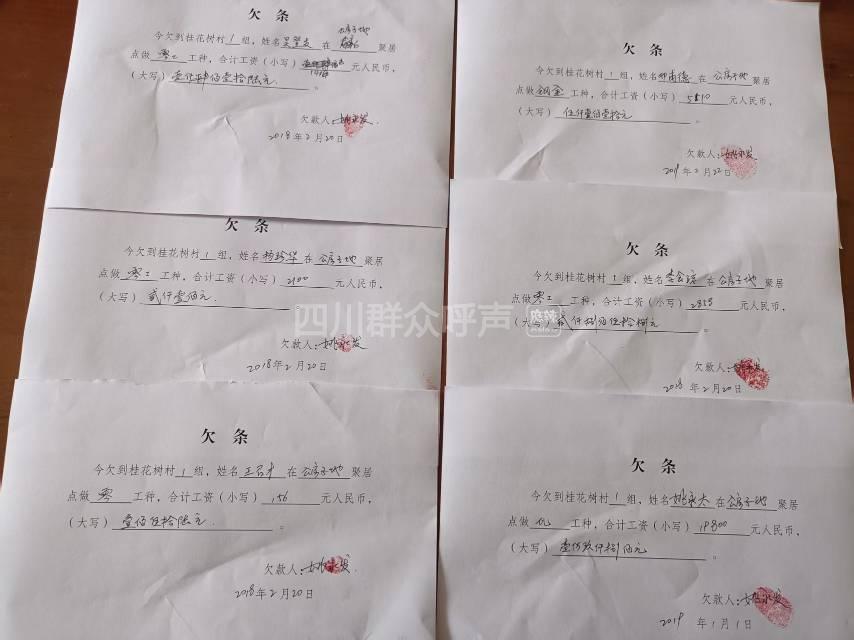 欠 条
今欠到桂花树村1组，姓名 在公房子地聚居
点做零工工种，合计工资（小写） 元人民币，
（大写）壹仟肆佰壹拾陆元。
欠款人：姚永发
2018年2月20日
欠 条
今欠到桂花树村1组，姓名 在公房子地聚居
点做 工种，合计工资（小写）5110元人民币，
（大写）伍仟壹佰壹拾元。
欠款人：姚永发
2019年2月22日
欠 条
今欠到桂花树村1组，姓名杨珍华在公房子地聚居
点做零工工种，合计工资（小写）2100元人民币，
（大写）贰仟壹佰元。
欠款人：姚永发
2018年2月20日
欠 条
今欠到桂花树村1组，姓名 在公房子地聚居
点做零工工种，合计工资（小写）2858元人民币，
（大写）贰仟捌佰伍拾捌元。
欠款人：姚永发
2018年2月20日
四川群众呼声
麻辣社区
欠 条
今欠到桂花树村1组，姓名王召才在公房子地聚居
点做零工种，合计工资（小写）156元人民币，
（大写）壹佰伍拾陆元。
欠款人：姚永发
2018年2月20日
欠 条
今欠到桂花树村1组，姓名姚永大在公房子地聚居
点做 工种，合计工资（小写）19800元人民币，
（大写）壹万玖仟捌佰元。
欠款人：姚永发
2019年1月1日